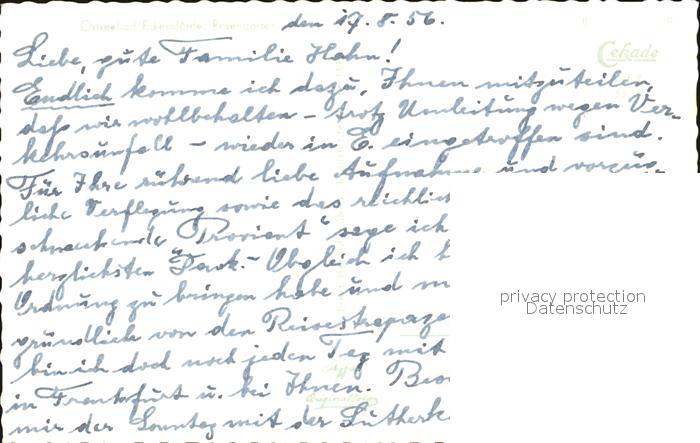 Ostseebad Eckernförde, Rosengarten
den 17.8.56.
Cekade
Liebe, gute Familie Hahn!
Endlich komme ich dazu, Ihnen mitzuteilen,
daß wir wohlbehalten – trotz Umleitung wegen Ver-
kehrsunfall – wieder in E. eingetroffen sind.
Für Ihre rührend liebe Aufnahme und vorzüg-
liche Verflegung sowie das reichlich
schmeckende "Proviant" sage ich
herzlichsten Dank. – Obgleich ich
Ordnung zu bringen habe und
gründlich von den Reisestrapaze
bin ich doch noch jeden Tag mit
in Frankfurt u. bei Ihnen.
mir der Sonntag mit der
privacy protection
Datenschutz